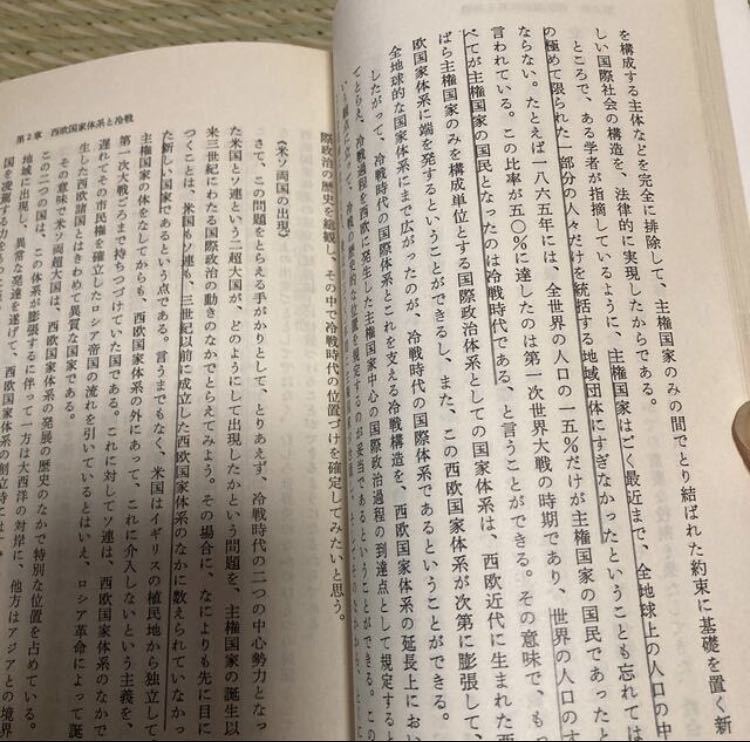 を構成する主体などを完全に排除して、主権国家のみの間でとり結ばれた約束に基礎を置く新
しい国際社会の構造を、法律的に実現したからである。
ところで、ある学者が指摘しているように、主権国家はごく最近まで、全地球上の人口の中
の極めて限られた一部分の人々だけを統括する地域団体にすぎなかったということも忘れては
ならない。たとえば一八六五年には、全世界の人口の一五%だけが主権国家の国民であったと
言われている。この比率が五〇%に達したのは第一次世界大戦の時期であり、世界の人口のす
べてが主権国家の国民となったのは冷戦時代である、と言うことができる。その意味で、もっ
ぱら主権国家のみを構成単位とする国際政治体系としての国家体系は、西欧近代に生まれた西
欧国家体系に端を発するということができるし、また、この西欧国家体系が次第に膨張して、
全地球的な国家体系にまで広がったのが、冷戦時代の国際体系であるということができる。
したがって、冷戦時代の国際体系とこれを支える冷戦構造を、西欧国家体系の延長上におい
てとらえ、冷戦過程を西欧に発生した主権国家中心の国際政治過程の到達点として規定すると
いう観点に立って、冷戦の歴史的な位置を規定するのが妥当であるということができる。この
際政治の歴史を総観し、その中で冷戦時代の位置づけを確定してみたいと思う。
《米ソ両国の出現》
さて、この問題をとらえる手がかりとして、とりあえず、冷戦時代の二つの中心勢力となっ
た米国とソ連という二超大国が、どのようにして出現したかという問題を、主権国家の誕生以
来三世紀にわたる国際政治の動きのなかでとらえてみよう。その場合に、なによりも先に目に
つくことは、米国もソ連も、三世紀以前に成立した西欧国家体系のなかに数えられていなかっ
た新しい国家であるという点である。言うまでもなく、米国はイギリスの植民地から独立して
主権国家の体をなしてからも、西欧国家体系の外にあって、これに介入しないという主義を、
第一次大戦ごろまで持ちつづけていた国である。これに対してソ連は、西欧国家体系のなかで
遅れてその市民権を確立したロシア帝国の流れを引いているとはいえ、ロシア革命によって誕
生した西欧諸国とはきわめて異質な国家である。
その意味で米ソ両超大国は、西欧国家体系の発展の歴史のなかで特別な位置を占めている。
この二つの国は、この体系が膨張するに伴って一方は大西洋の対岸に、他方はアジアとの境界
地域に出現し、異常な発達を遂げて、西欧国家体系の創立時には
国を凌駕する力をもった
第2章 西欧国家体系と冷戦